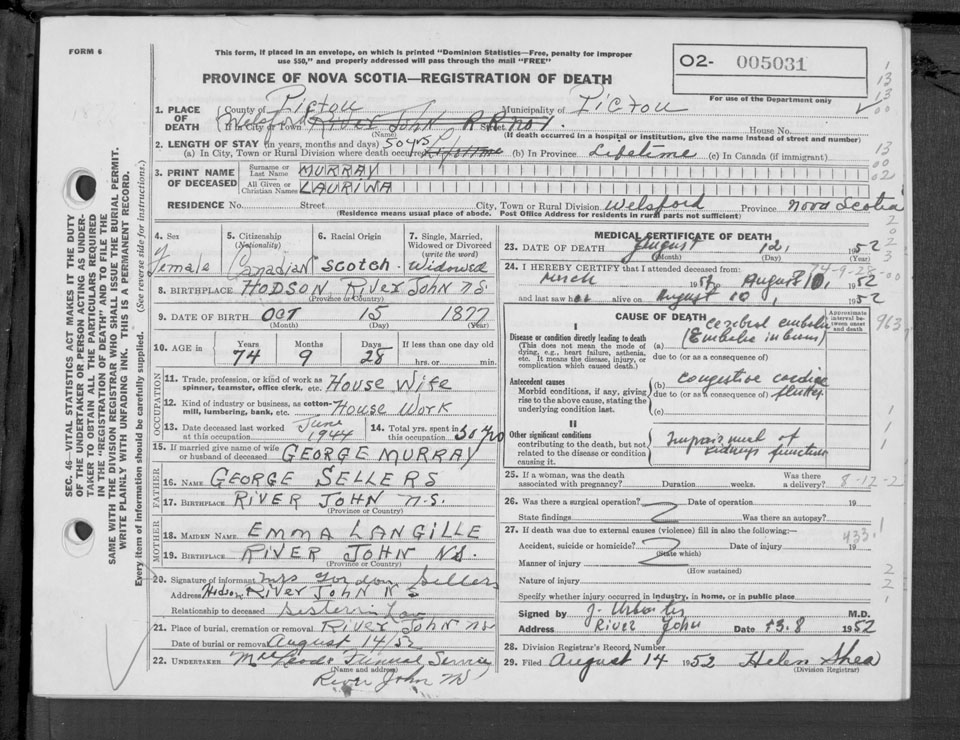 FORM 6
This form, if placed in an envelope, on which is printed "Dominion Statistics—Free, penalty for improper
use $50," and properly addressed will pass through the mail "FREE"
PROVINCE OF NOVA SCOTIA—REGISTRATION OF DEATH
O2- 005031
For use of the Department only
1. PLACE OF DEATH
County of Pictou Municipality of Pictou
Welsford
or in City or Town River John R R no 1. Street House No.
(Name) (If death occurred in a hospital or institution, give the name instead of street and number)
2. LENGTH OF STAY (in years, months and days) 50 yrs
(a) In City, Town or Rural Division where death occurred Lifetime (b) In Province Lifetime (c) In Canada (if immigrant)
3. PRINT NAME OF DECEASED
Surname or Last Name MURRAY
All Given or Christian Names LAURINA
RESIDENCE No. Street City, Town or Rural Division Welsford Province Nova Scotia
(Residence means usual place of abode. Post Office Address for residents in rural parts not sufficient)
SEC. 46—VITAL STATISTICS ACT MAKES IT THE DUTY
OF THE UNDERTAKER OR PERSON ACTING AS UNDER-
TAKER TO OBTAIN ALL THE PARTICULARS REQUIRED
IN THE "REGISTRATION OF DEATH" AND TO FILE THE
SAME WITH THE DIVISION REGISTRAR WHO SHALL ISSUE THE BURIAL PERMIT.
WRITE PLAINLY WITH UNFADING INK. THIS IS A PERMANENT RECORD.
Every item of information should be carefully supplied. (See reverse side for instructions.)
4. Sex Female
5. Citizenship (Nationality) Canadian
6. Racial Origin Scotch
7. Single, Married, Widowed or Divorced (write the word) Widowed
8. BIRTHPLACE HODSON River John N.S
(Province or Country)
9. DATE OF BIRTH OCT 15 1877
(Month) (Day) (Year)
10. AGE in Years 74 Months 9 Days 28 If less than one day old
hrs. or min.
OCCUPATION
11. Trade, profession, or kind of work as
spinner, teamster, office clerk, etc. House Wife
12. Kind of industry or business, as cotton-
mill, lumbering, bank, etc. House Work
13. Date deceased last worked
at this occupation June 1944
14. Total yrs. spent in
this occupation 50 yrs
15. If married give name of wife
or husband of deceased GEORGE MURRAY
FATHER
16. NAME GEORGE SELLERS
17. BIRTHPLACE RIVER JOHN N.S.
(Province or Country)
MOTHER
18. MAIDEN NAME EMMA LANGILLE
19. BIRTHPLACE RIVER JOHN NS.
(Province or Country)
20. Signature of informant Mrs Gordon Sellers
Address Hodson River John N S
Relationship to deceased Sister in Law
21. Place of burial, cremation or removal River John NS
Date of burial or removal August 14/52
22. UNDERTAKER Funeral Service
(Name and address)
River John NS
MEDICAL CERTIFICATE OF DEATH
23. DATE OF DEATH August 12, 1952
(Month) (Day) (Year)
24. I HEREBY CERTIFY that I attended deceased from:
March 195 to August 10, 1952
and last saw her alive on August 10, 1952
CAUSE OF DEATH
Approximate interval between onset and death
I
Disease or condition directly leading to death
(This does not mean the mode of
dying, e.g., heart failure, asthenia,
etc. It means the disease, injury, or
complication which caused death.)
(a) cerebral embolie
due to (or as a consequence of)
Antecedent causes
Morbid conditions, if any, giving
rise to the above cause, stating the
underlying condition last.
(b) congestive cardiac
due to (or as a consequence of)
(c)
II
Other significant conditions
contributing to the death, but not
related to the disease or condition
causing it.
Impairment of
kidneys function
25. If a woman, was the death
associated with pregnancy? Duration weeks. Was there
a delivery?
8-12-2
26. Was there a surgical operation? Date of operation 19
State findings Was there an autopsy?
27. If death was due to external causes (violence) fill in also the following:—
433.
Accident, suicide or homicide? Date of injury 19
(State which)
Manner of injury
(How sustained)
Nature of injury
Specify whether injury occurred in industry, in home, or in public place
Signed by M.D.
Address River John Date 13.8 1952
28. Division Registrar's Record Number
29. Filed August 14 1952 Helen Shea
(Division Registrar)
963